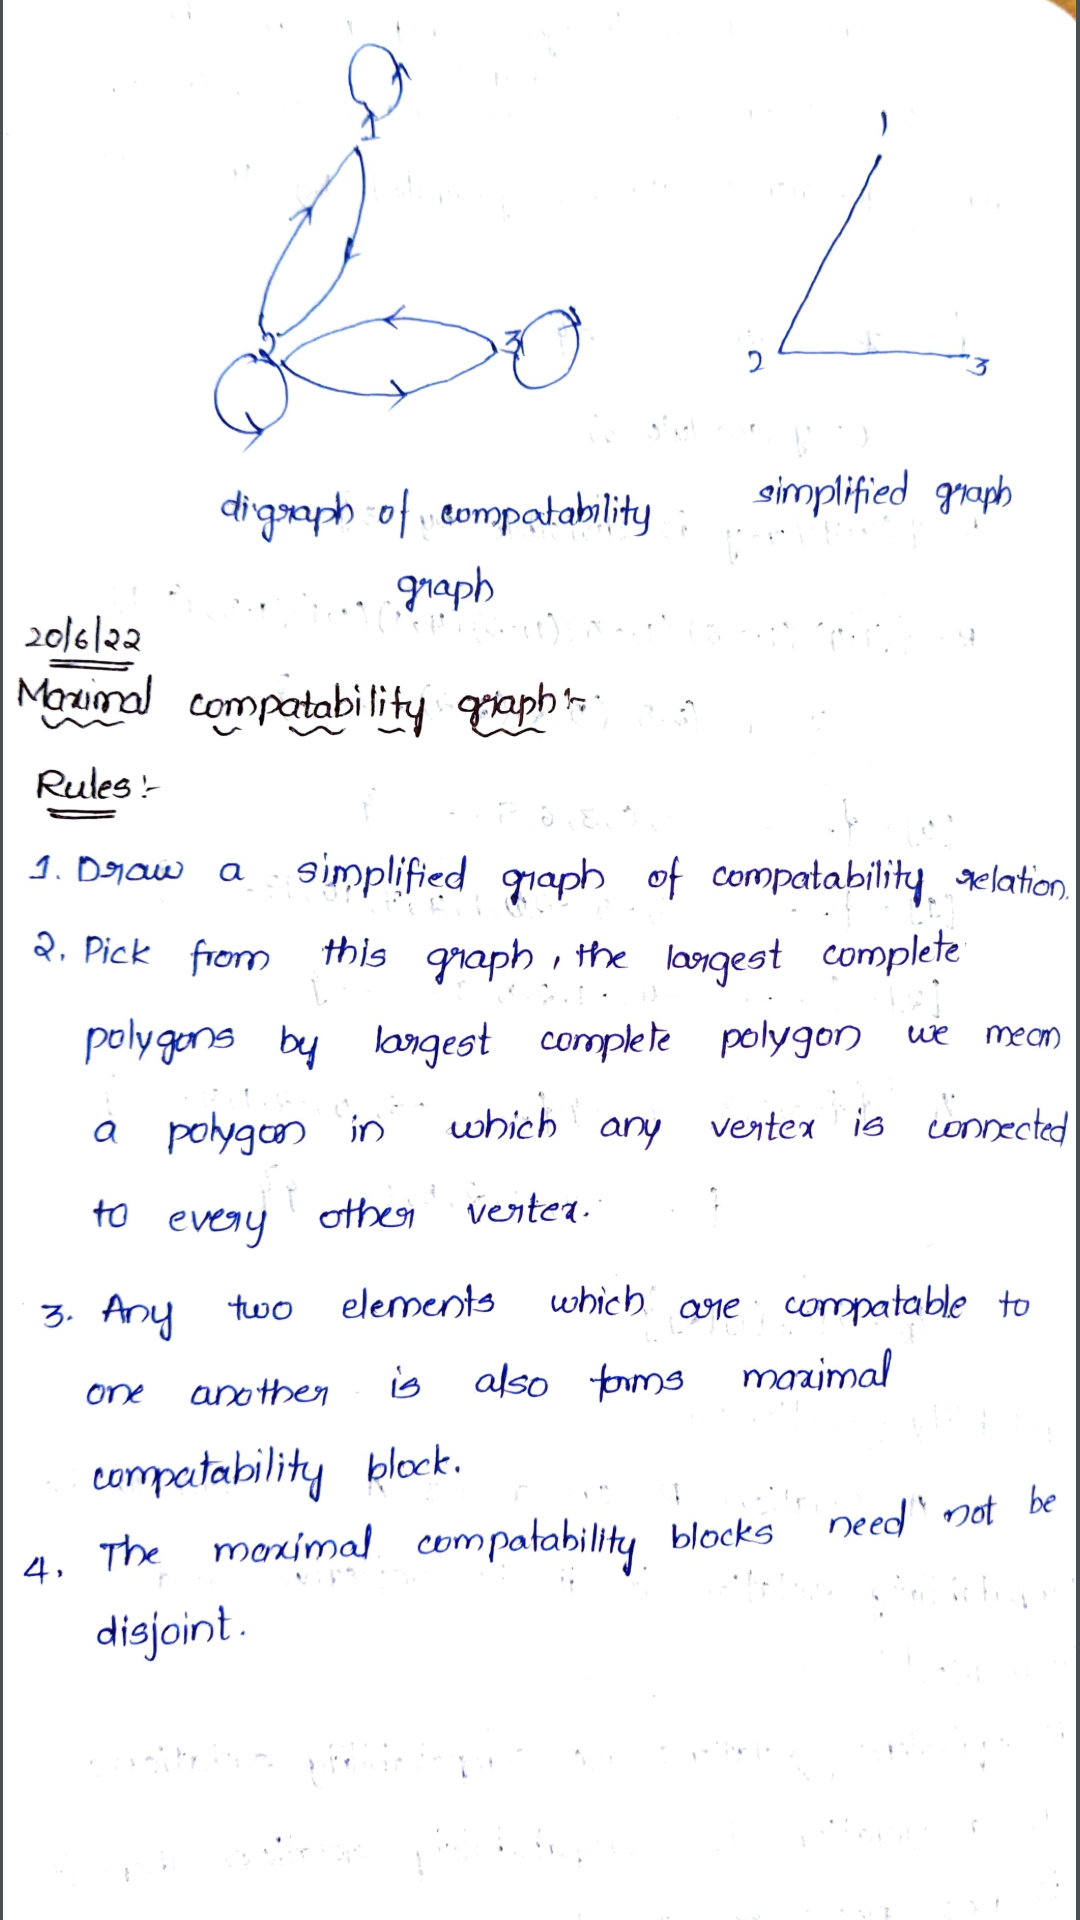 1
1
2
3
2
3
digraph of compatability
simplified graph
graph
20/6/22
Maximal compatability graph :-
Rules :-
1. Draw a simplified graph of compatability relation.
2. Pick from this graph, the largest complete
polygons by largest complete polygon we mean
a polygon in which any vertex is connected
to every other vertex.
3. Any two elements which are compatable to
one another is also forms maximal
compatability block.
4. The maximal compatability blocks need not be
disjoint.